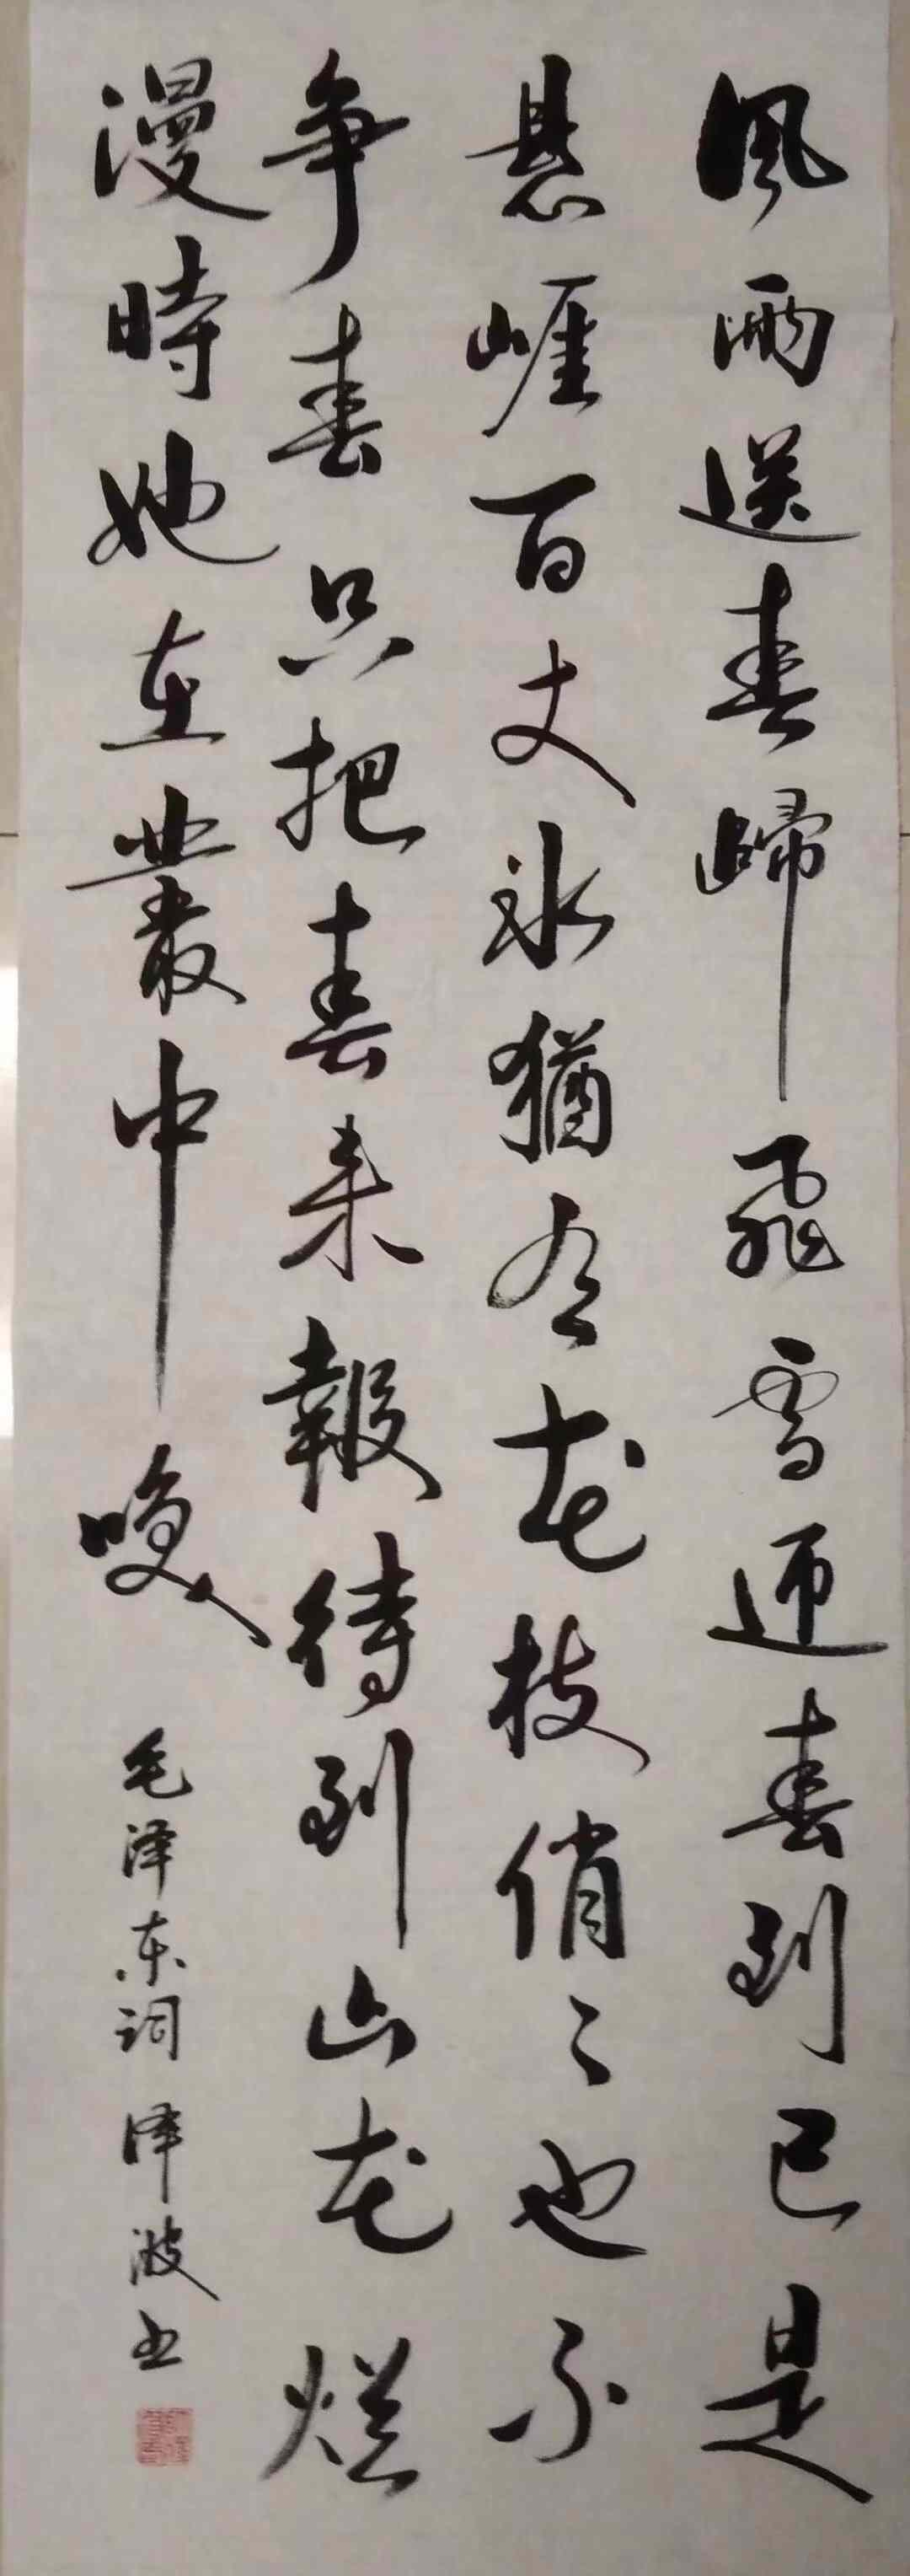 風雨送春歸飛雪迎春到已是
懸崖百丈冰猶有花枝俏〻也不
爭春只把春来報待到山花爛
漫時她在叢中唤
毛泽东词 泽波书